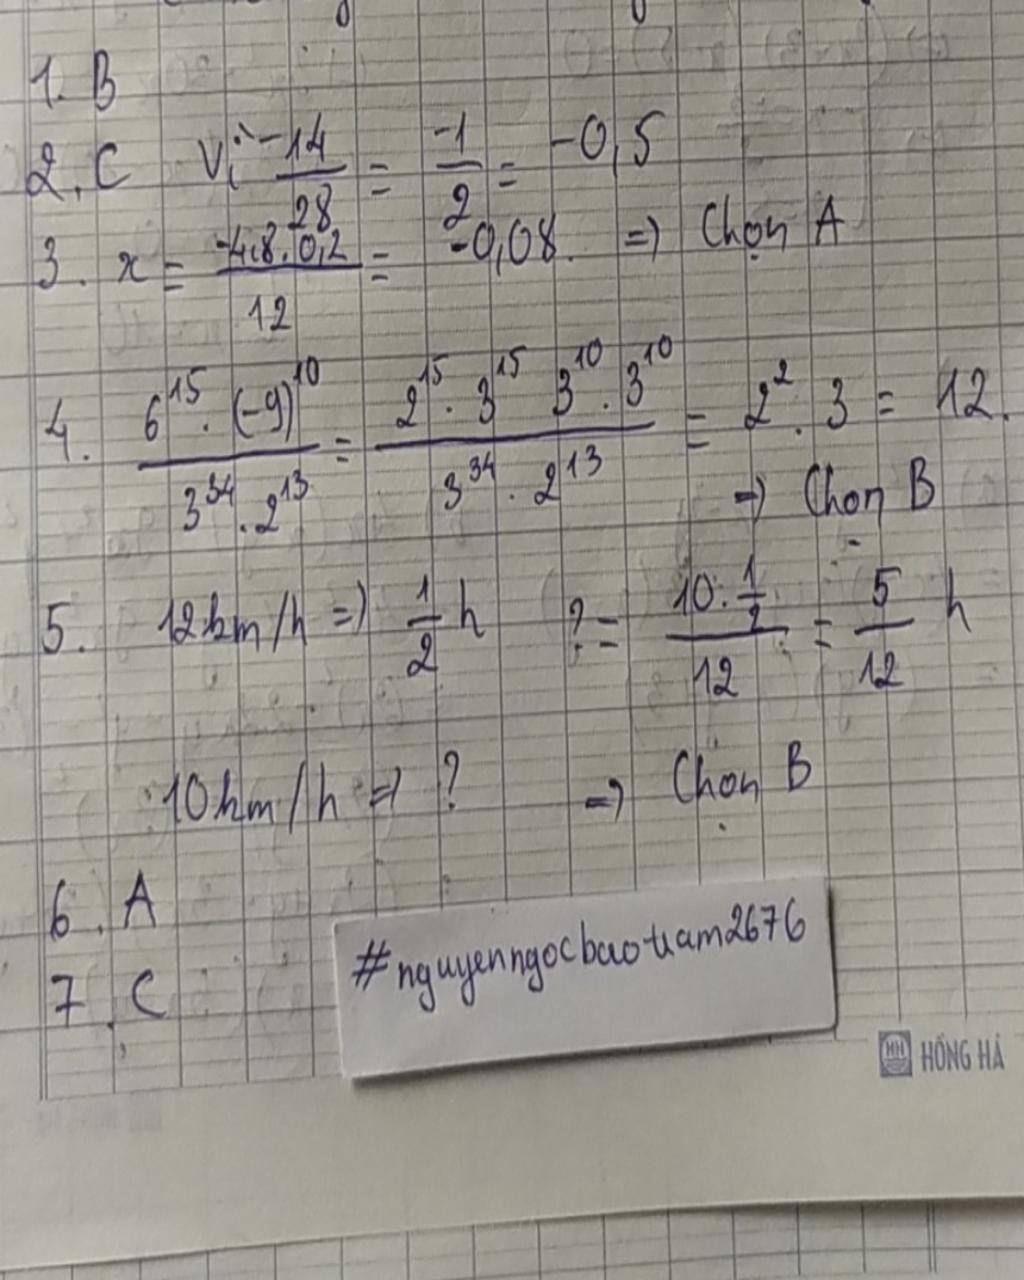 1. B
2. C Vì -14/28 = -1/2 = -0,5
3. x = -4,8.0,2/12 = -0,08. => Chọn A
4. 6^15.(-9)^10/3^34.2^13 = 2^15.3^15 3^10.3^10/3^34.2^13 = 2^2.3 = 12.
=> Chọn B
5. 12km/h => 1/2 h ? = 10.1/2/12 = 5/12 h
10km/h => ? => Chọn B
6. A
7. C
#nguyenngocbaotram2676
HH HỒNG HÀ